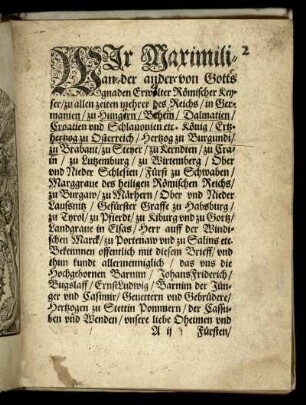 2
WIr Maximili-
an der ander von Gotts
gnaden Erwölter Römischer Key-
ser/ zu allen zeiten mehrer des Reichs/ in Ger-
manien/ zu Hungern/ Behem/ Dalmatien/
Croatien und Schlavonien etc. König/ Ertz-
hertzog zu Osterreich/ Hertzog zu Burgundt/
zu Brabant/ zu Steyer/ zu Kerndten/ zu Cra-
in/ zu Lutzemburg/ zu Wirtemberg/ Ober
und Nieder Schlesien/ Fürst zu Schwaben/
Marggrave des heiligen Römischen Reichs/
zu Burgaw/ zu Märhern/ Ober und Nieder
Laußnitz/ Gefürster Graffe zu Habsburg/
zu Tyrol/ zu Pfierdt/ zu Kiburg und zu Gortz/
Landgrave in Elsas/ Herr auff der Windi-
schen Marck/ zu Portenaw und zu Salins etc.
Bekennen offentlich mit diesem Brieff/ und
thun kundt allermenniglich/ das uns die
Hochgebornen Barnim/ Johans Friderich/
Bugslaff/ Ernst Ludwig/ Barnim der Jün-
ger und Casimir/ Gevettern und Gebrüdere/
Hertzogen zu Stettin Pommern/ der Cassu-
ben und Wenden/ unsere liebe Oheimen und
A ij Fürsten/